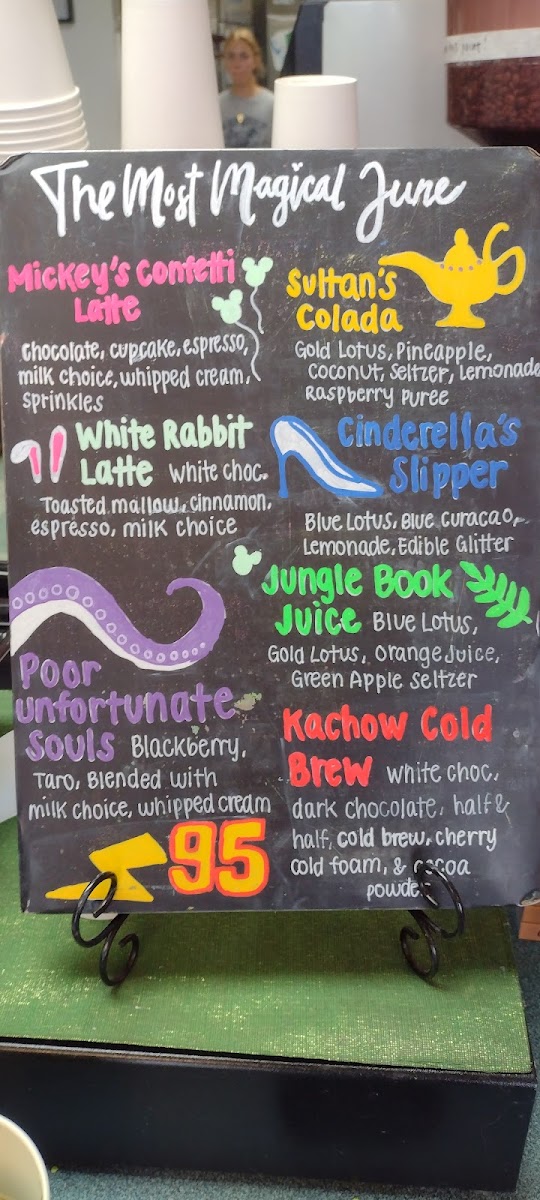 The Most Magical June
Mickey's Confetti
Latte
chocolate, cupcake, espresso,
milk choice, whipped cream,
sprinkles
White Rabbit
Latte white choc.
Toasted mallow, cinnamon,
espresso, milk choice
Poor
unfortunate
Souls Blackberry,
Taro, Blended with
milk choice, whipped cream
95
Sultan's
Colada
Gold Lotus, Pineapple,
Coconut, Seltzer, Lemonade
Raspberry Puree
Cinderella's
Slipper
Blue Lotus, Blue Curacao,
Lemonade, Edible Glitter
Jungle Book
Juice Blue Lotus,
Gold Lotus, Orange Juice,
Green Apple Seltzer
Kachow Cold
Brew white choc.
dark chocolate, half &
half, cold brew, cherry
cold foam, & cocoa
powder